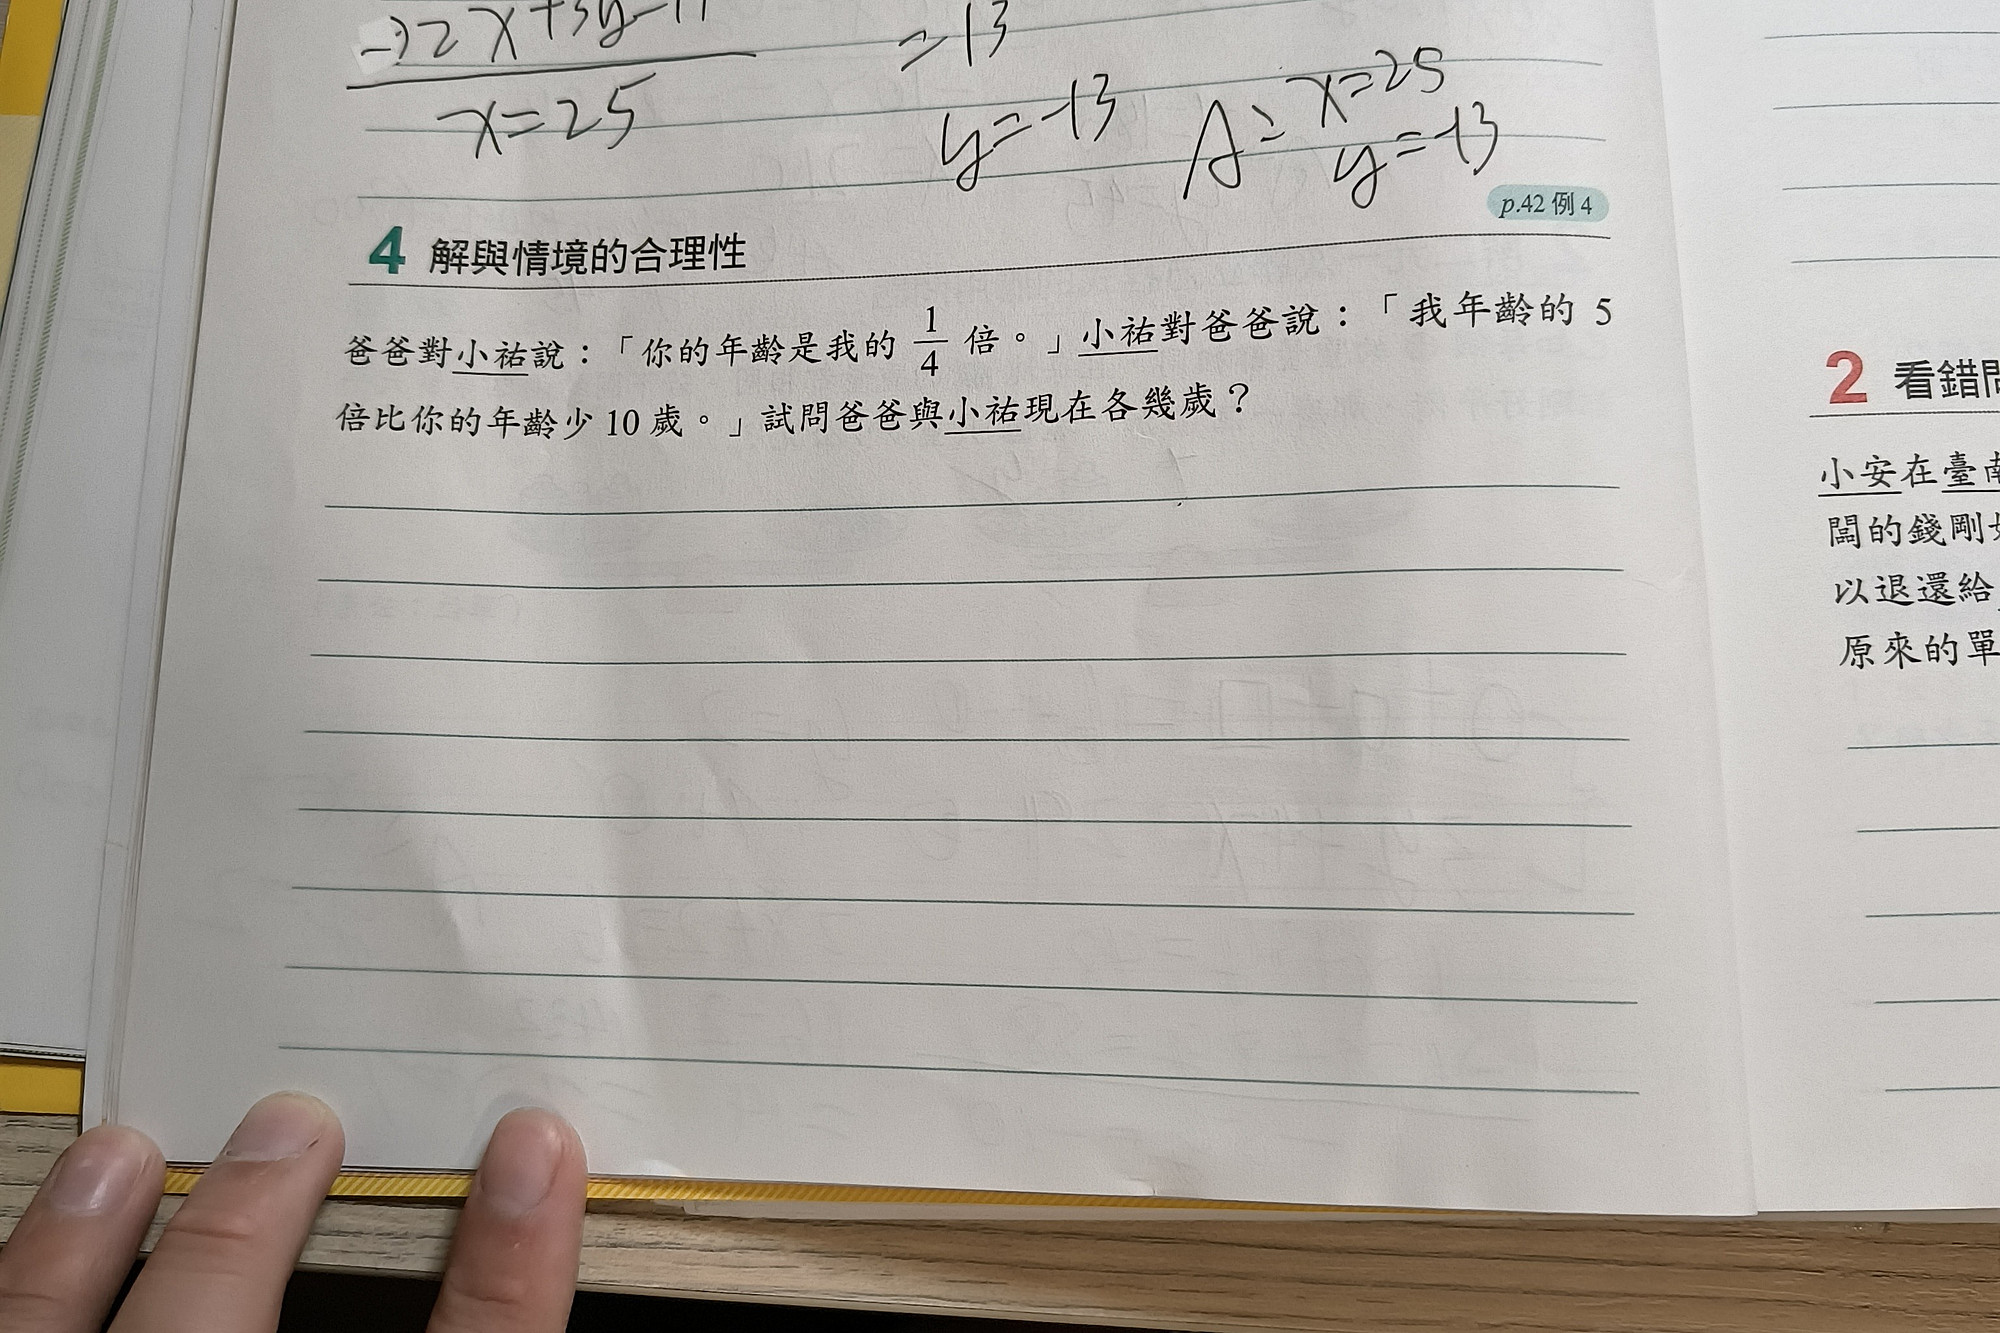 x=25
=13
y=-13
A= x=25
y=-13
p.42 例 4
4 解與情境的合理性
爸爸對小祐說：「你的年齡是我的 1/4 倍。」小祐對爸爸說：「我年齡的 5
倍比你的年齡少 10 歲。」試問爸爸與小祐現在各幾歲？
2 看錯
小安在臺南
闆的錢剛
以退還給
原來的單